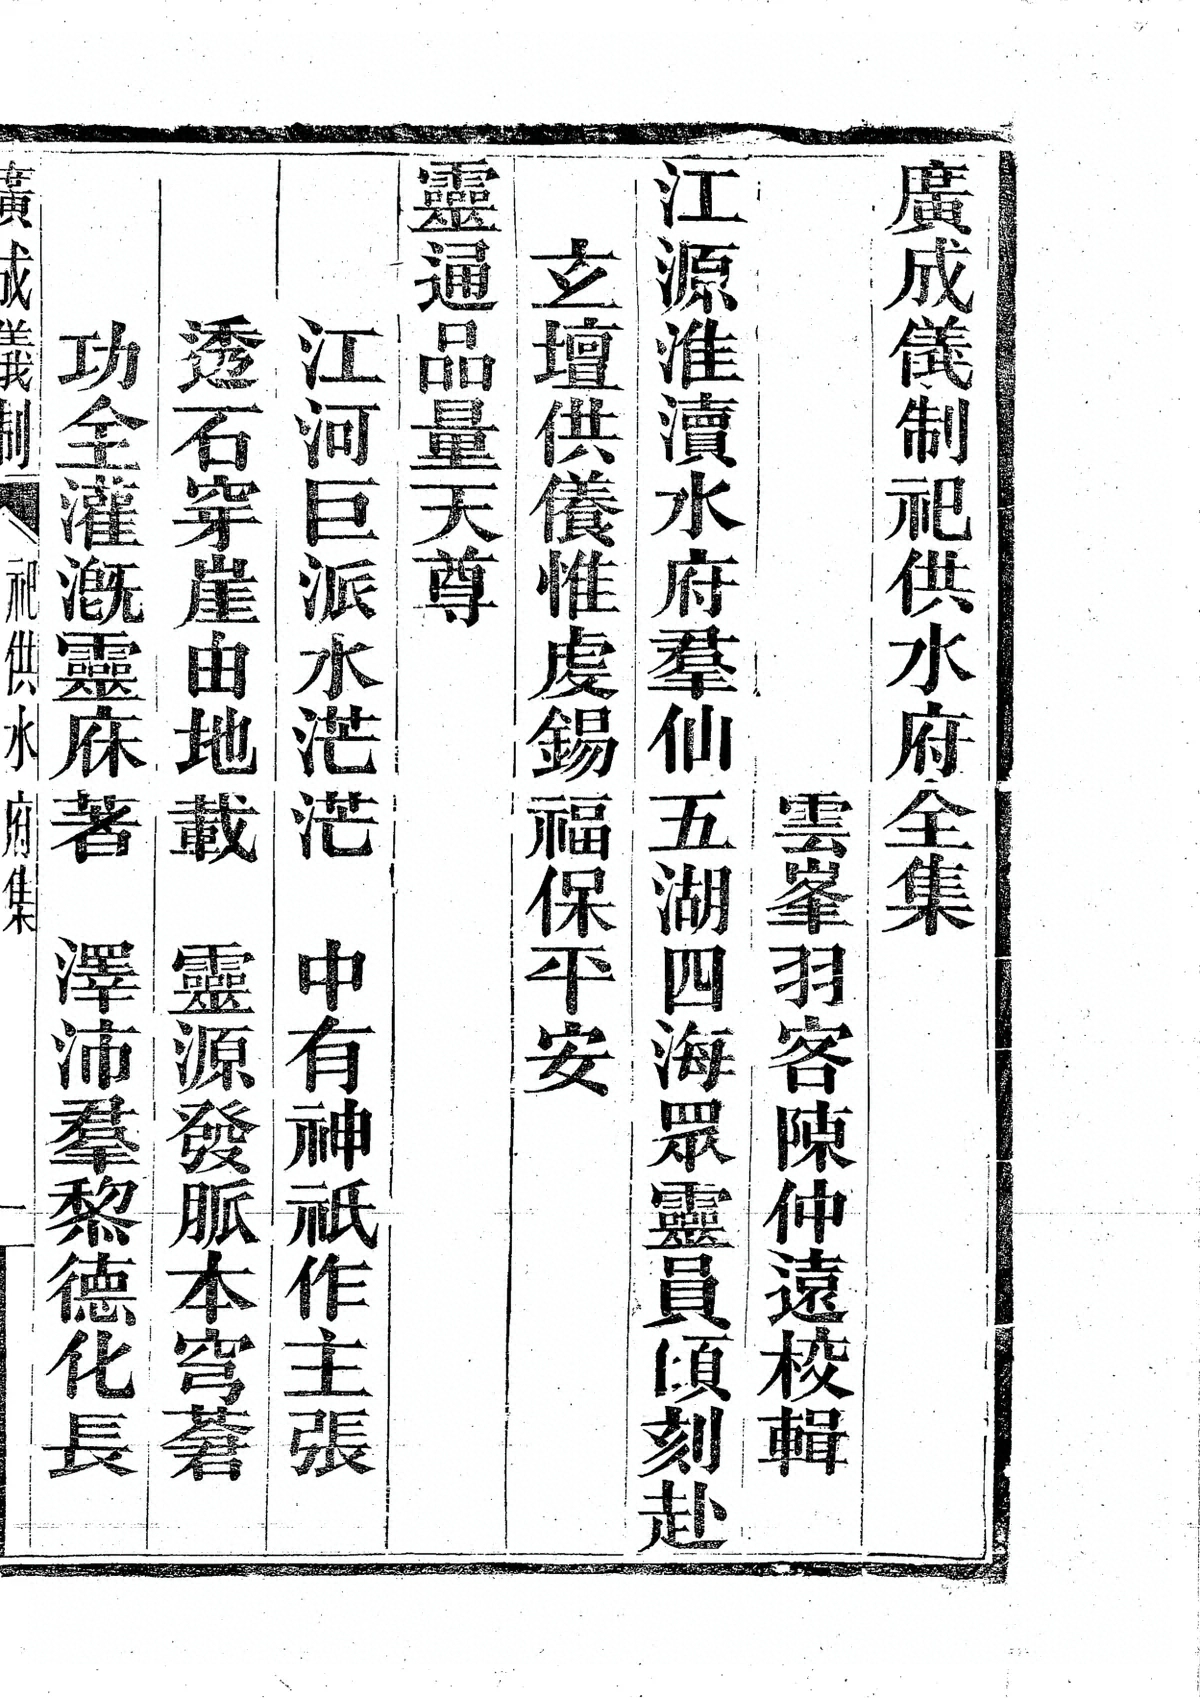 廣成儀制祀供水府全集
雲峯羽客陳仲遠校輯
江源淮瀆水府羣仙五湖四海眾靈員頃刻赴
玄壇供養惟虔錫福保平安
靈通品量天尊
江河巨派水茫茫　中有神祇作主張
透石穿崖由地載　靈源發脈本穹蒼
功全灌溉靈庥著　澤沛羣黎德化長
廣成儀制　祀供水府集　一